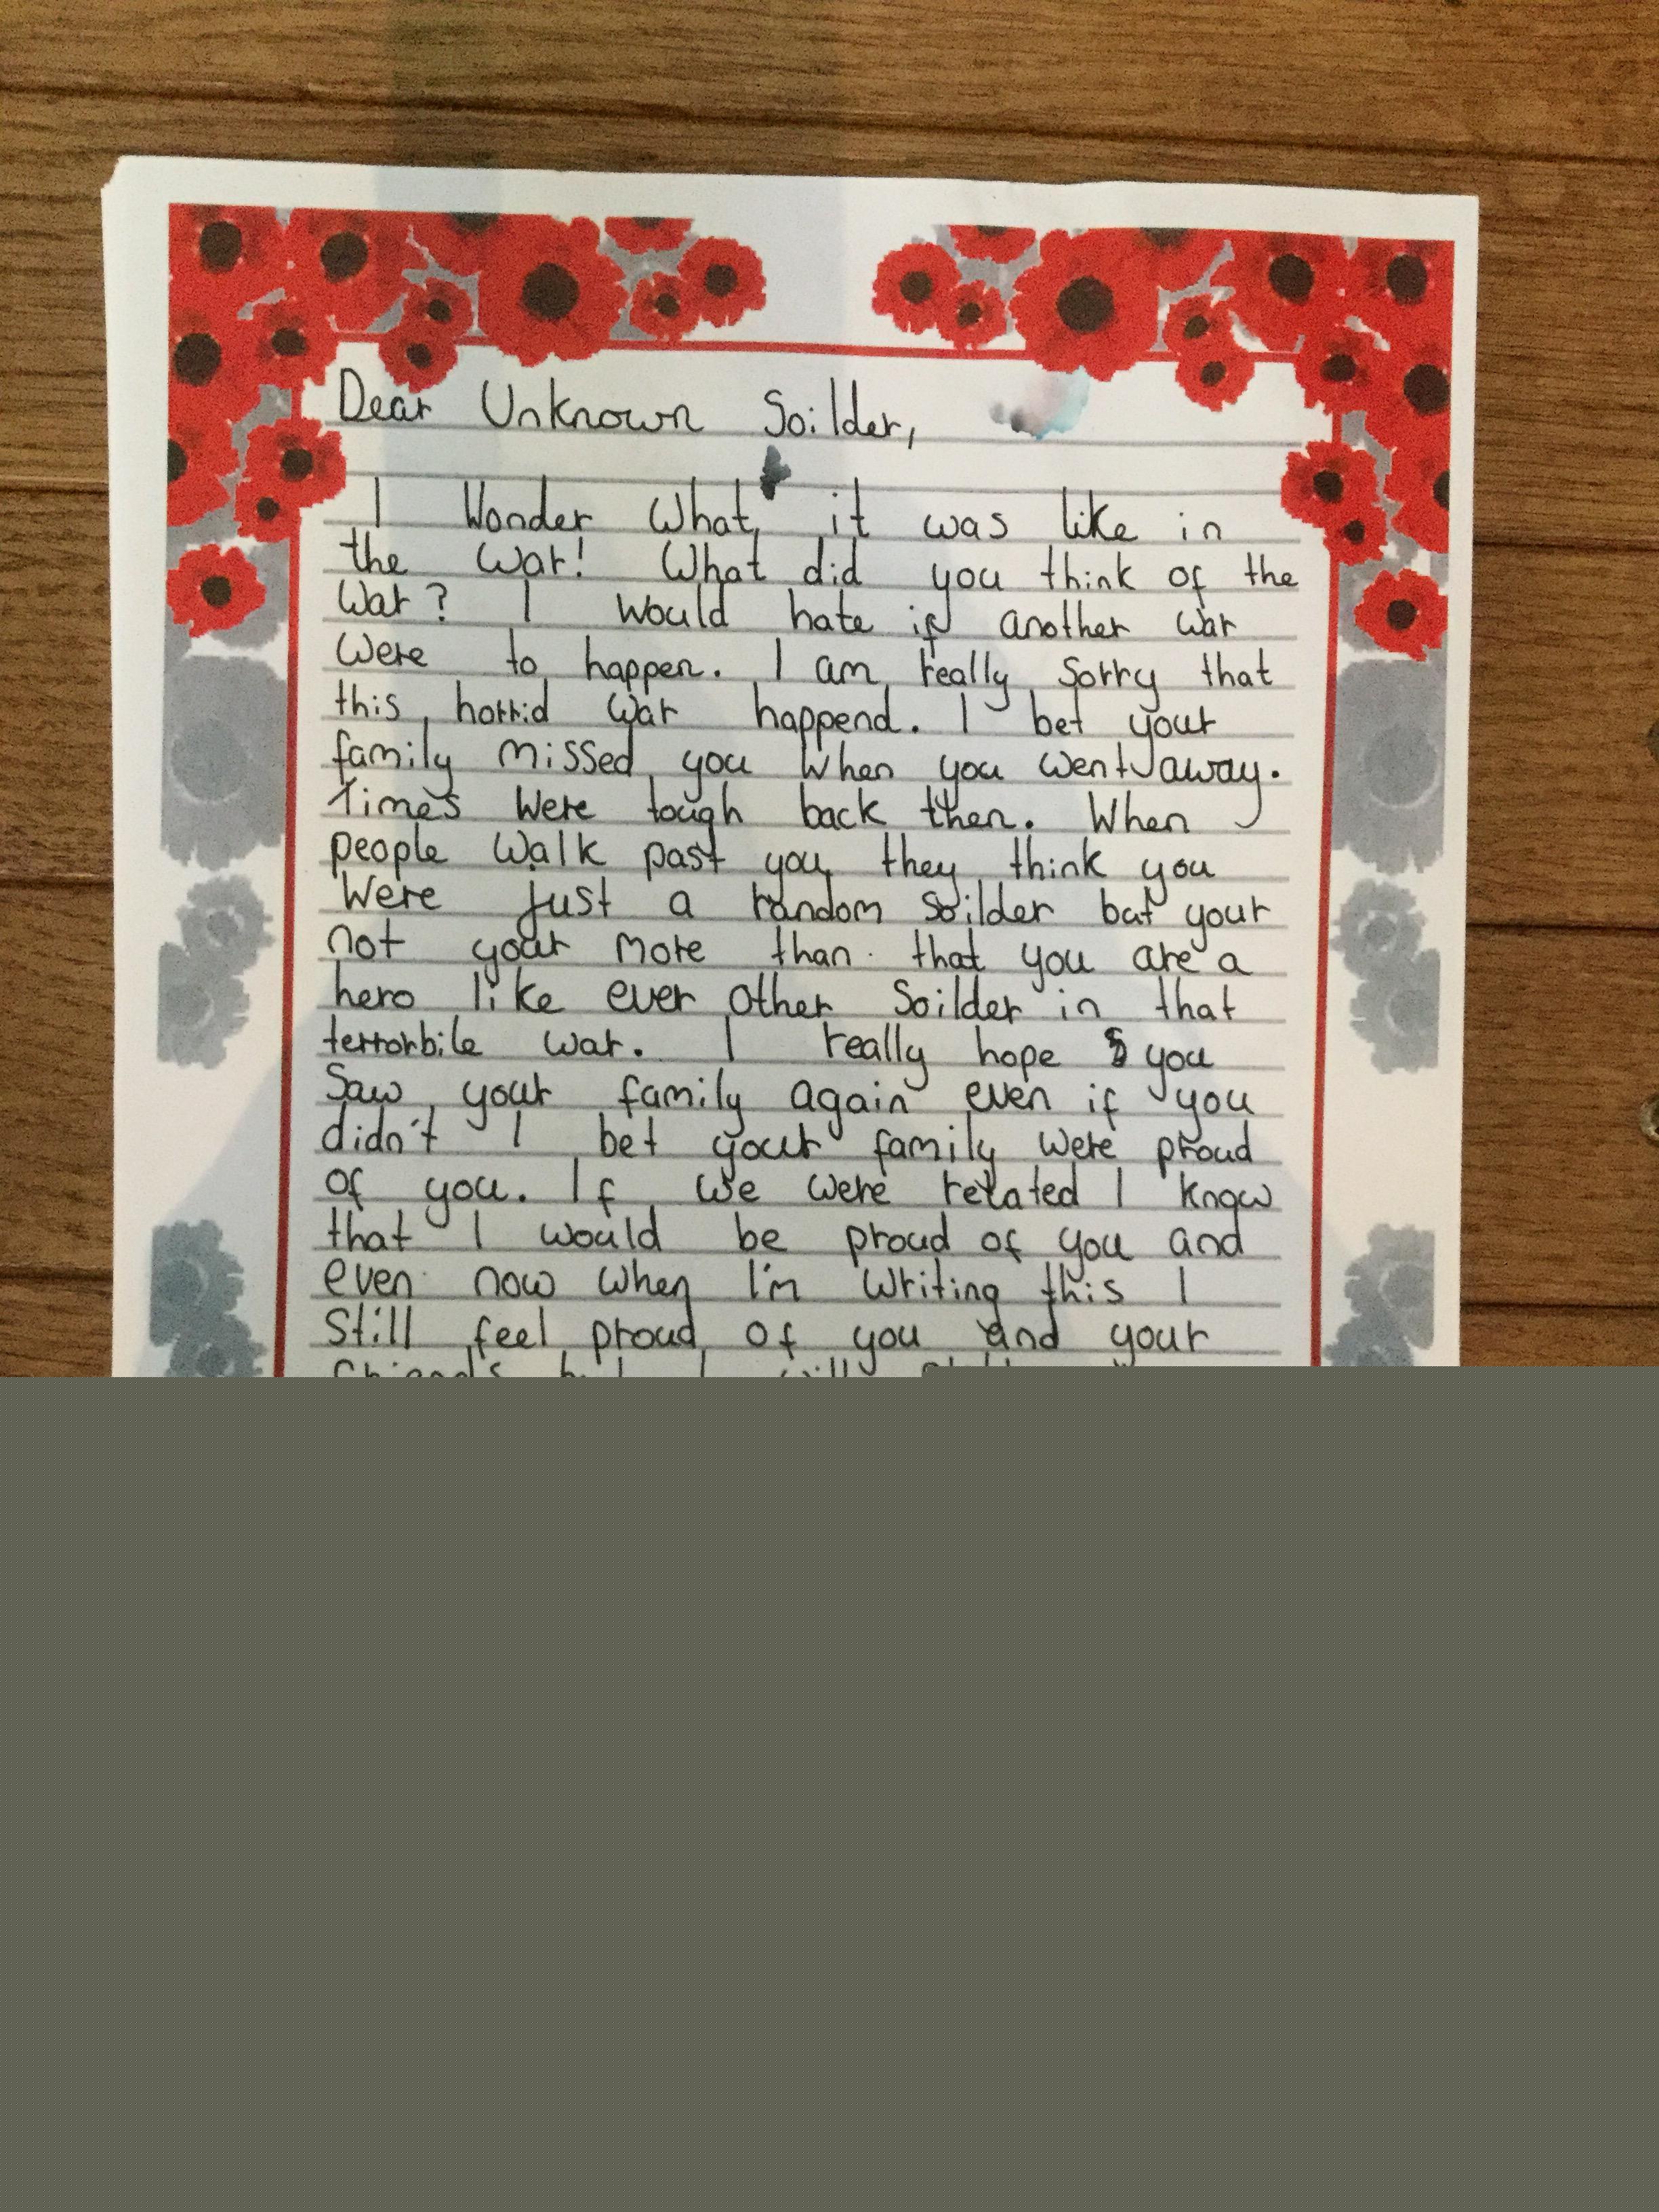 Dear Unknown Soilder,
I Wonder What it was like in
the War! What did you think of the
War? I would hate if another war
Were to happen. I am really Sorry that
this horrid War happend. I bet your
family missed you When you went away.
Times Were tough back then. When
people Walk past you they think you
Were Just a random Soilder but your
not your more than that you are a
hero like ever other Soilder in that
terrorbile war. I really hope you
Saw your family again even if you
didn't I bet your family were proud
of you. If we were related I know
that I would be proud of you and
even now when I'm Writing this I
Still feel proud of you and your
friends but I will